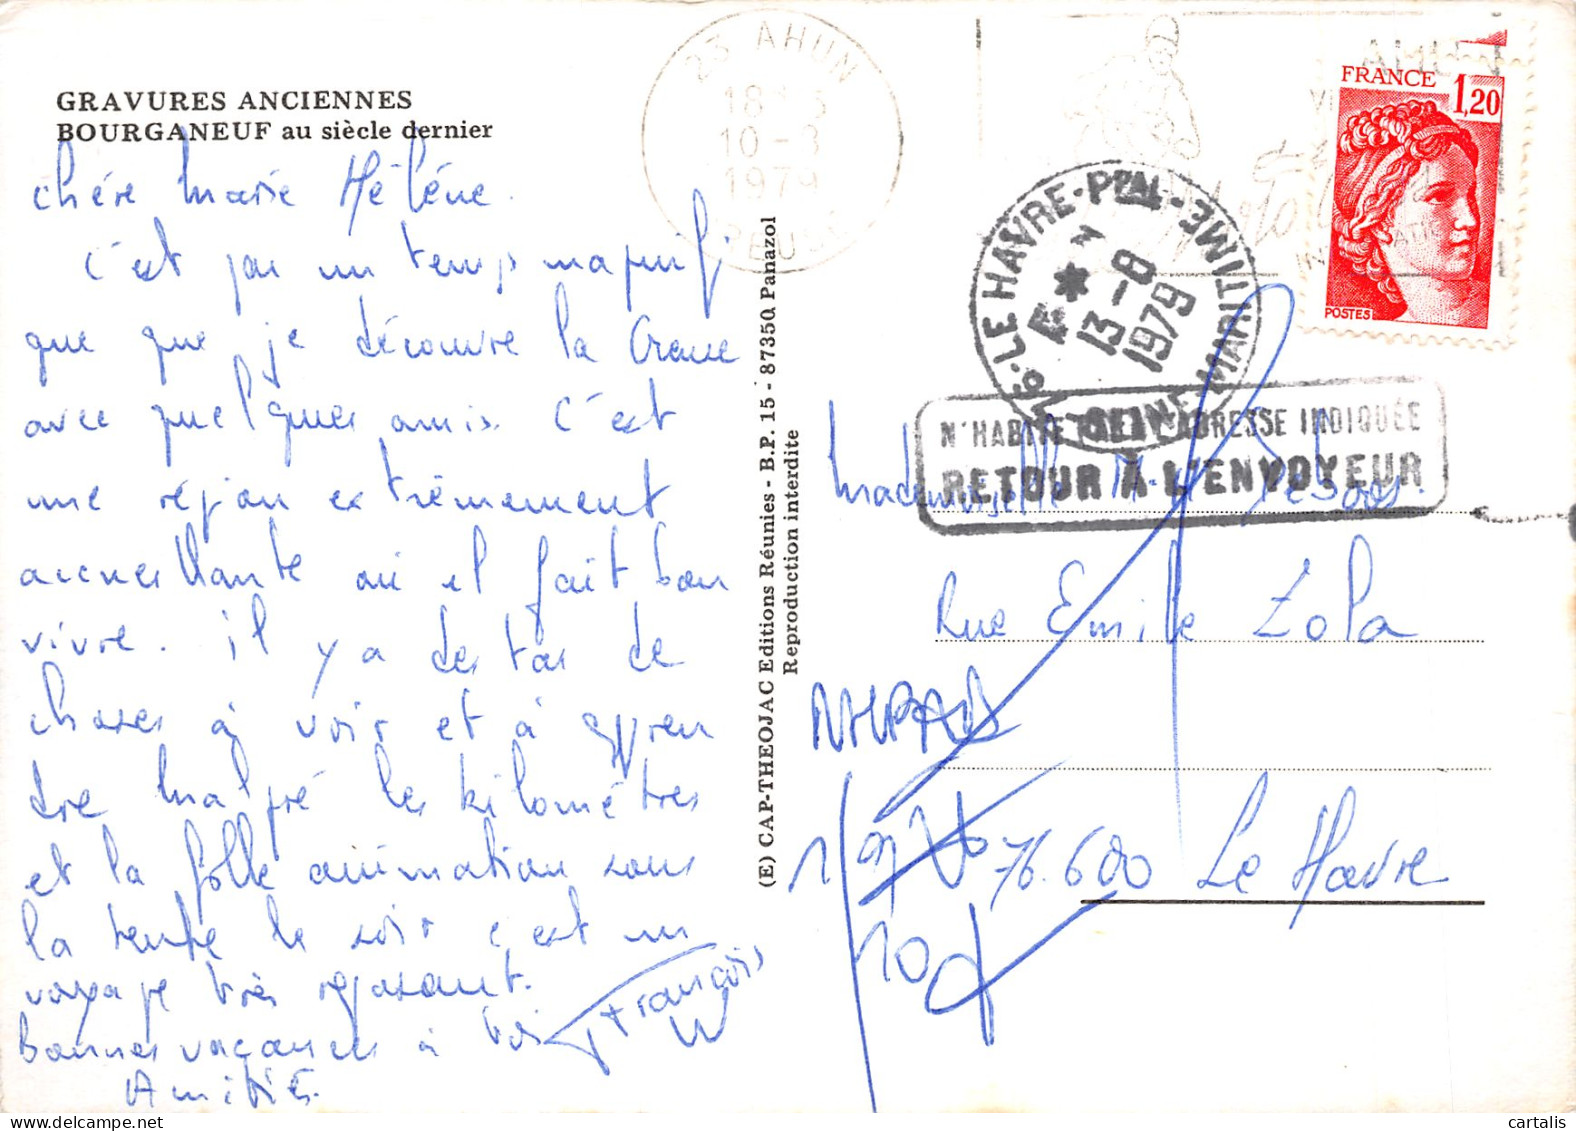 GRAVURES ANCIENNES
BOURGANEUF au siècle dernier
chère Marie Hélène.
C'est par un temps magnifi
que que je découvre la Creuse
avec quelques amis. C'est
une région extrêmement
accueillante où il fait bon
vivre. il y a des tas de
choses à voir et à appren
dre malgré les kilomètres
et la folle animation sous
la tente le soir c'est un
voyage très reposant.
bonnes vacances à toi
Amitiés.
François
(E) CAP-THEOJAC Editions Réunies - B.P. 15 - 87350 Panazol
Reproduction interdite
23 AHUN
18
10-8
1979
CREUSE
76-LE HAVRE-Pal-SEINE MARITIME
13-8
1979
FRANCE
1,20
POSTES
N'HABITE PAS L'ADRESSE INDIQUÉE
RETOUR À L'ENVOYEUR
Mademoiselle M-H
Rue Emile Zola
76.600 Le Havre
cartalis